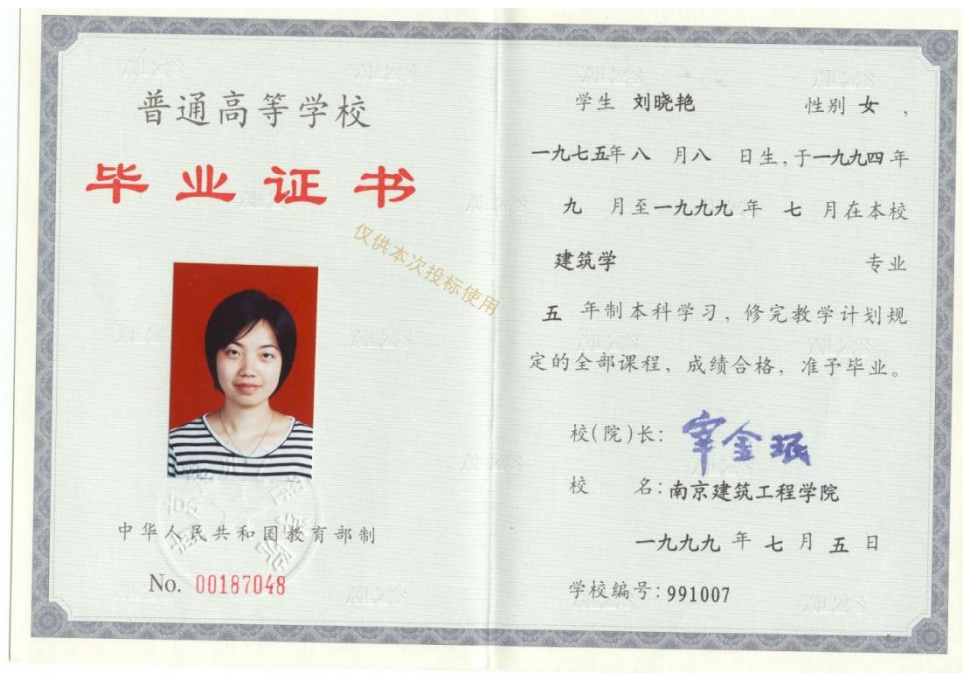 普通高等学校
毕业证书
仅供本次投标使用
中华人民共和国教育部制
No. 00187048
学生 刘晓艳 性别 女,
一九七五年八 月八 日生,于一九九四年
九 月至一九九九 年 七 月在本校
建筑学 专业
五 年制本科学习,修完教学计划规
定的全部课程,成绩合格,准予毕业。
校(院)长: 宰金珉
校 名:南京建筑工程学院
一九九九 年 七 月 五 日
学校编号:991007